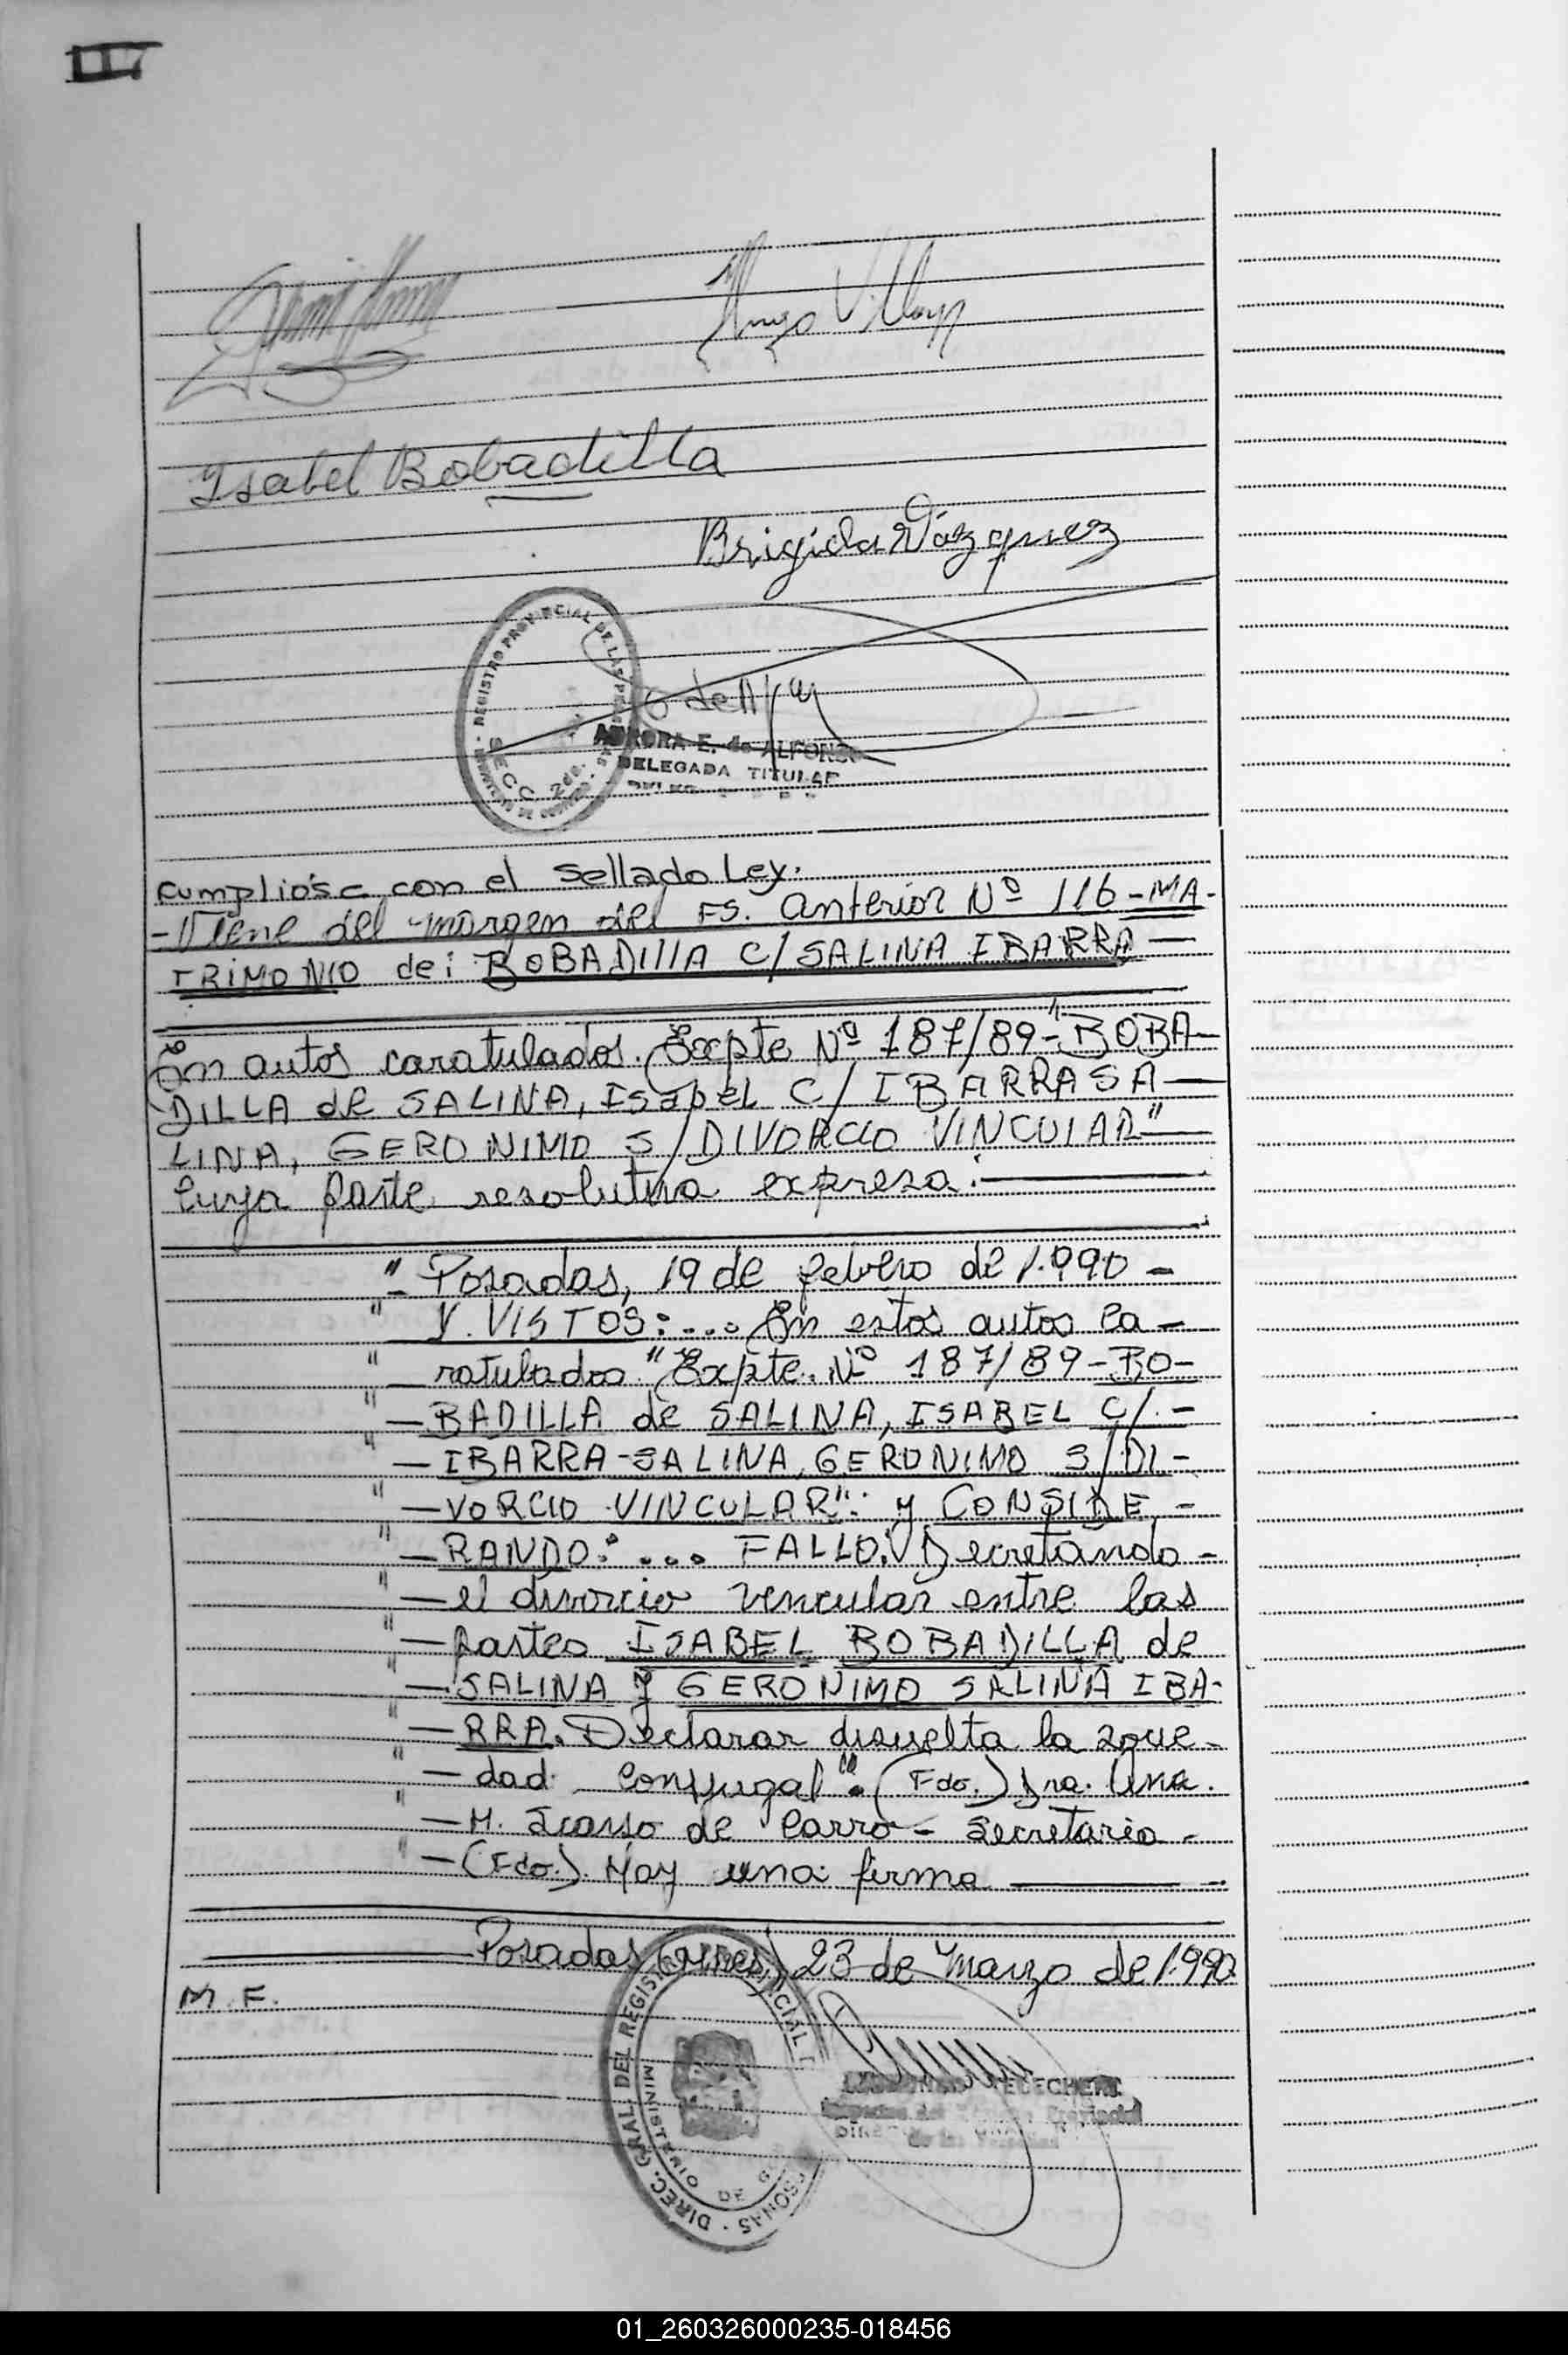 Hugo Villag
Isabel Bobadilla
Brigida Vázquez
REGISTRO PROVINCIAL DE LAS PERSONAS
SECC. 2da.
AURORA E. de ALFONSO
DELEGADA TITULAR
cumpliose con el sellado Ley.
-Viene del margen del Fs. anterior Nº 116-MA-
TRIMONIO de: BOBADILLA C/ SALINA IBARRA—
En autos caratulados. Expte Nº 187/89-"BOBA-
DILLA de SALINA, ISabEL C/ IBARRA SA—
LINA, GERONIMO S/DIVORCIO VINCULAR"—
Cuya parte resolutiva expresa:—
"- Posadas, 19 de febrero de 1.990 -
" Y. VISTOS:... En estos autos Ca-
" ratulados "Expte. Nº 187/89-BO-
" —BADILLA de SALINA, ISABEL C/.-
" —IBARRA-SALINA, GERONIMO S/DI-
" —VORCIO VINCULAR": y CONSIDE-
" —RANDO:... FALLO: Decretando-
" —el divorcio vincular entre las
" —partes ISABEL BOBADILLA de
" —SALINA y GERONIMO SALINA IBA-
" —RRA. Declarar disuelta la socie-
" —dad conyugal". (Fdo.) Dra. Ana.
" —M. de Carro- Secretaria-
" —(Fdo.). Hay una firma —
Posadas (Mnes) 23 de Marzo de 1.990
M. F.
DIREC. GRAL. DEL REGISTRO PROVINCIAL DE LAS PERSONAS
MINISTERIO DE G
Provincial
de las Personas
01_260326000235-018456